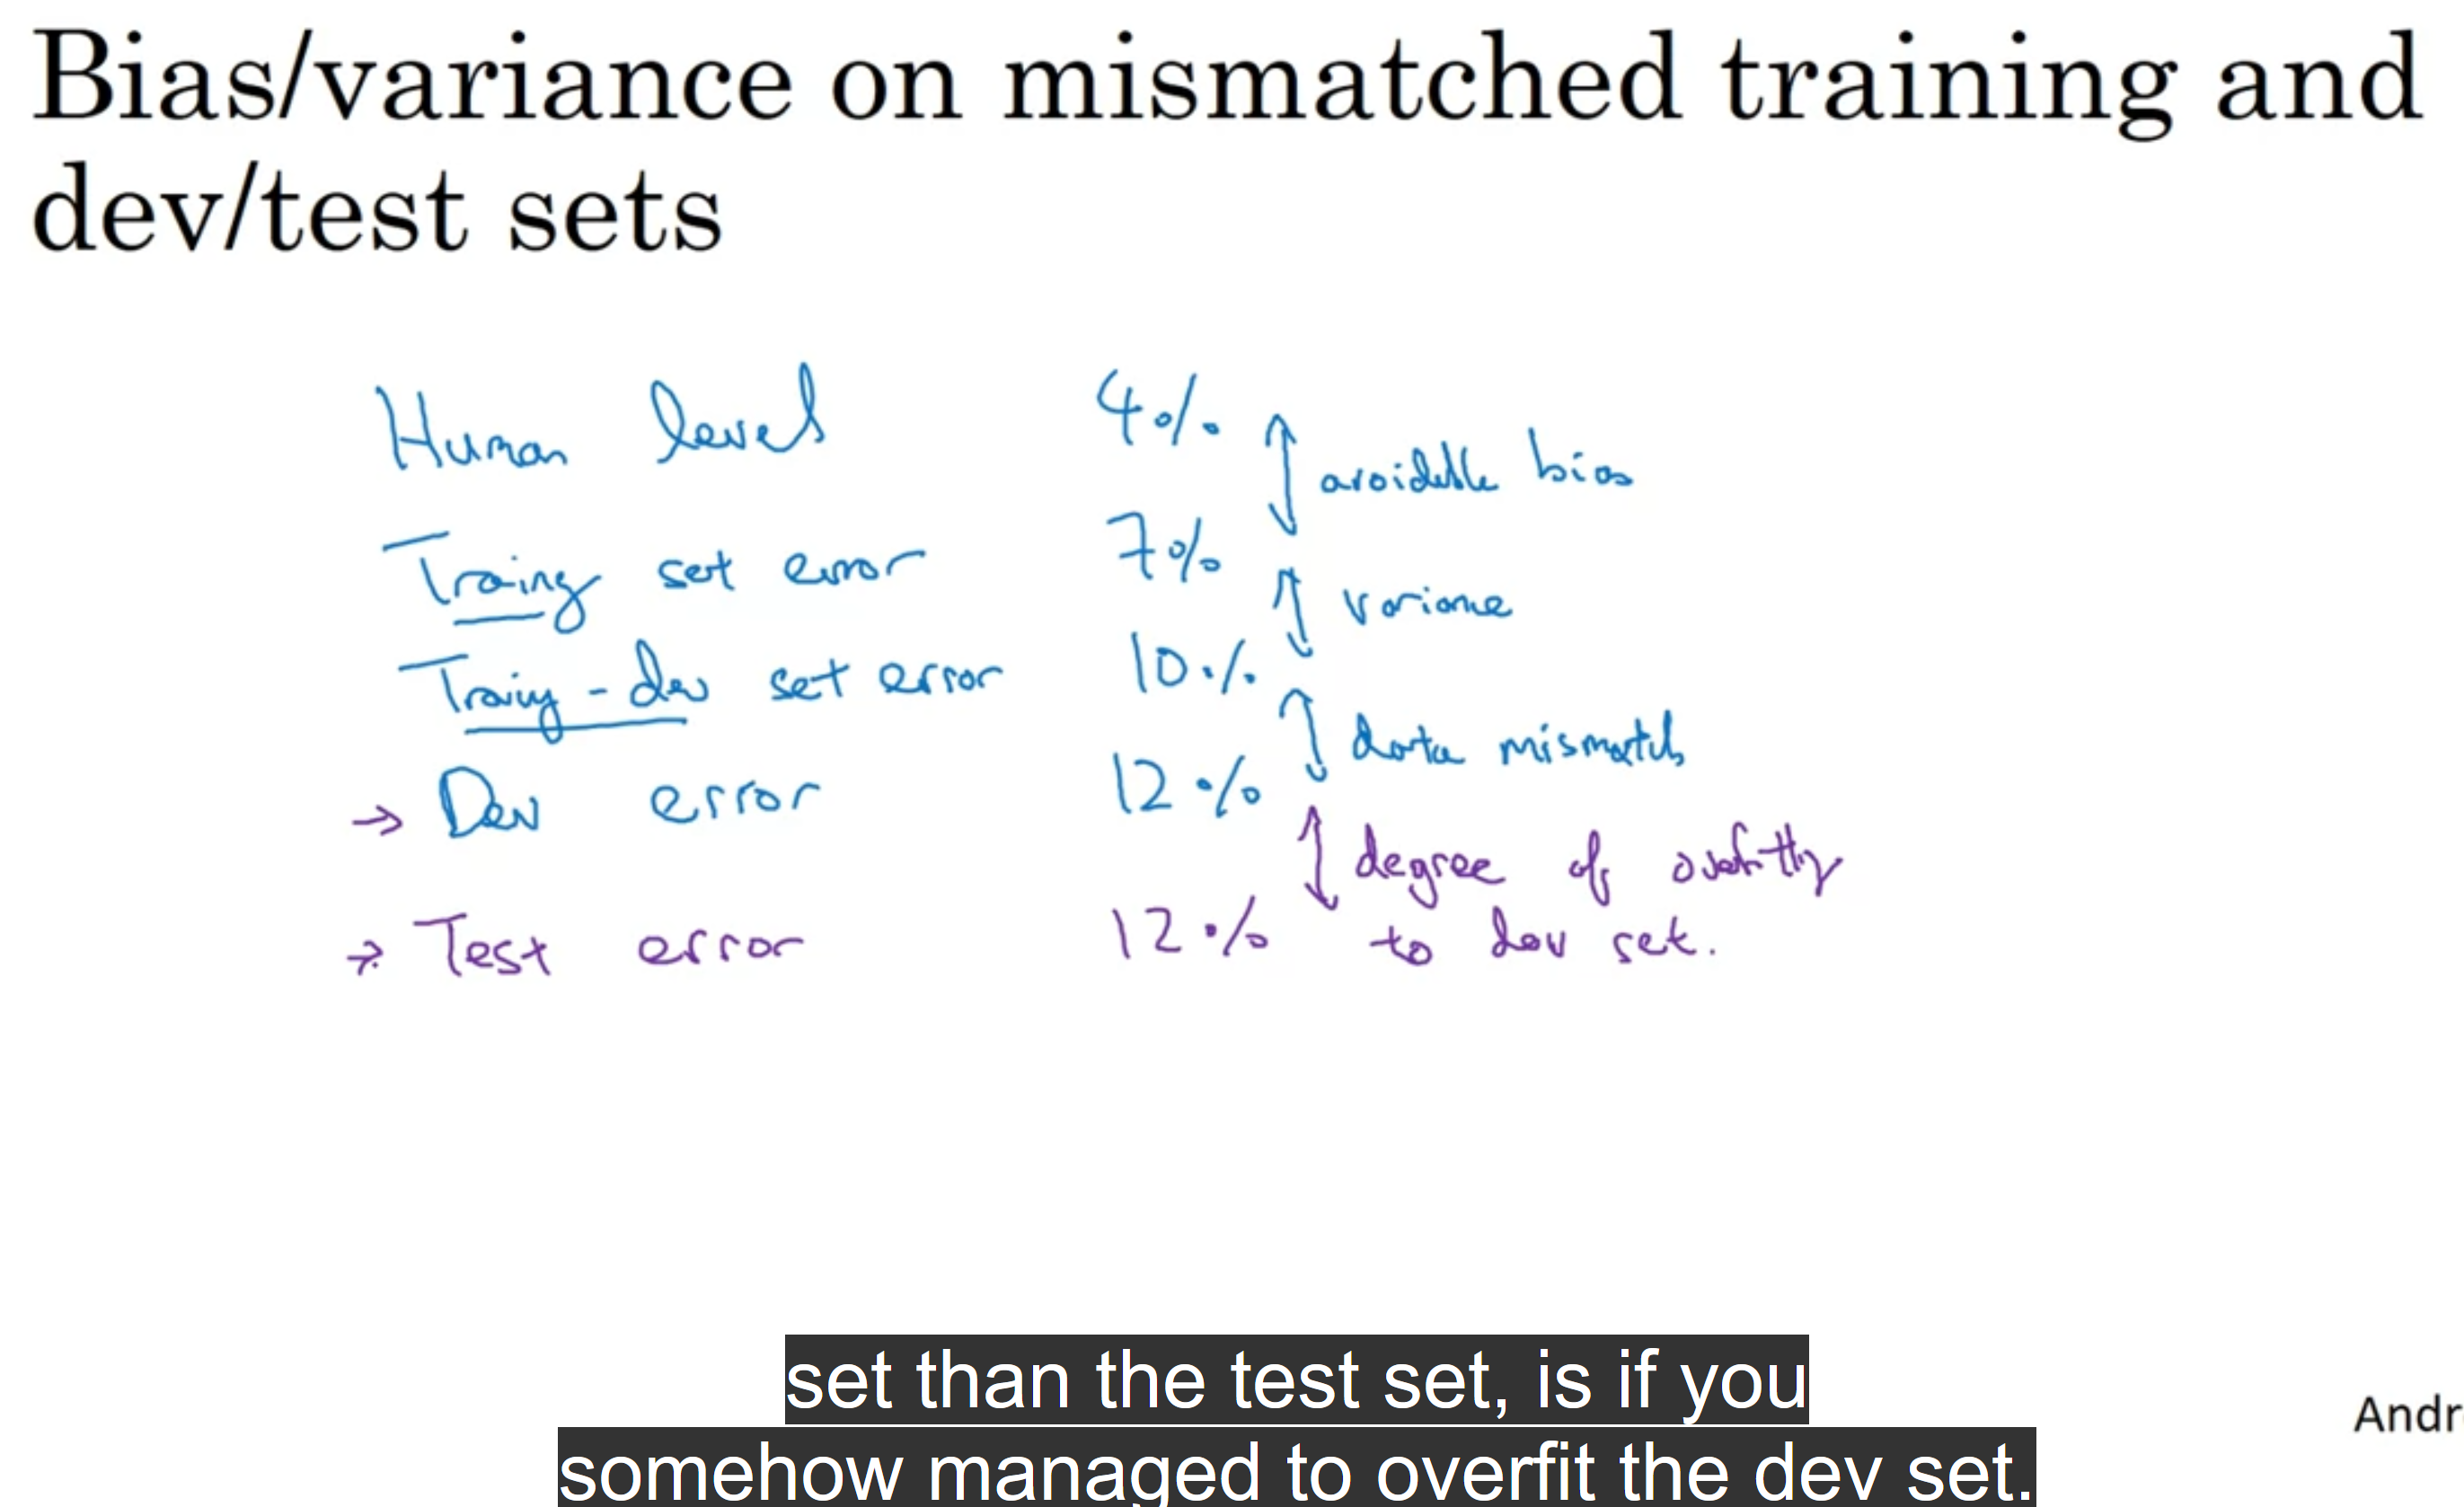 Bias/variance on mismatched training and
dev/test sets
Human level 4%
avoidable bias
Training set error 7%
variance
Training-dev set error 10%
data mismatch
→ Dev error 12%
degree of overfitting
→ Test error 12% to dev set.
set than the test set, is if you
Andr
somehow managed to overfit the dev set.